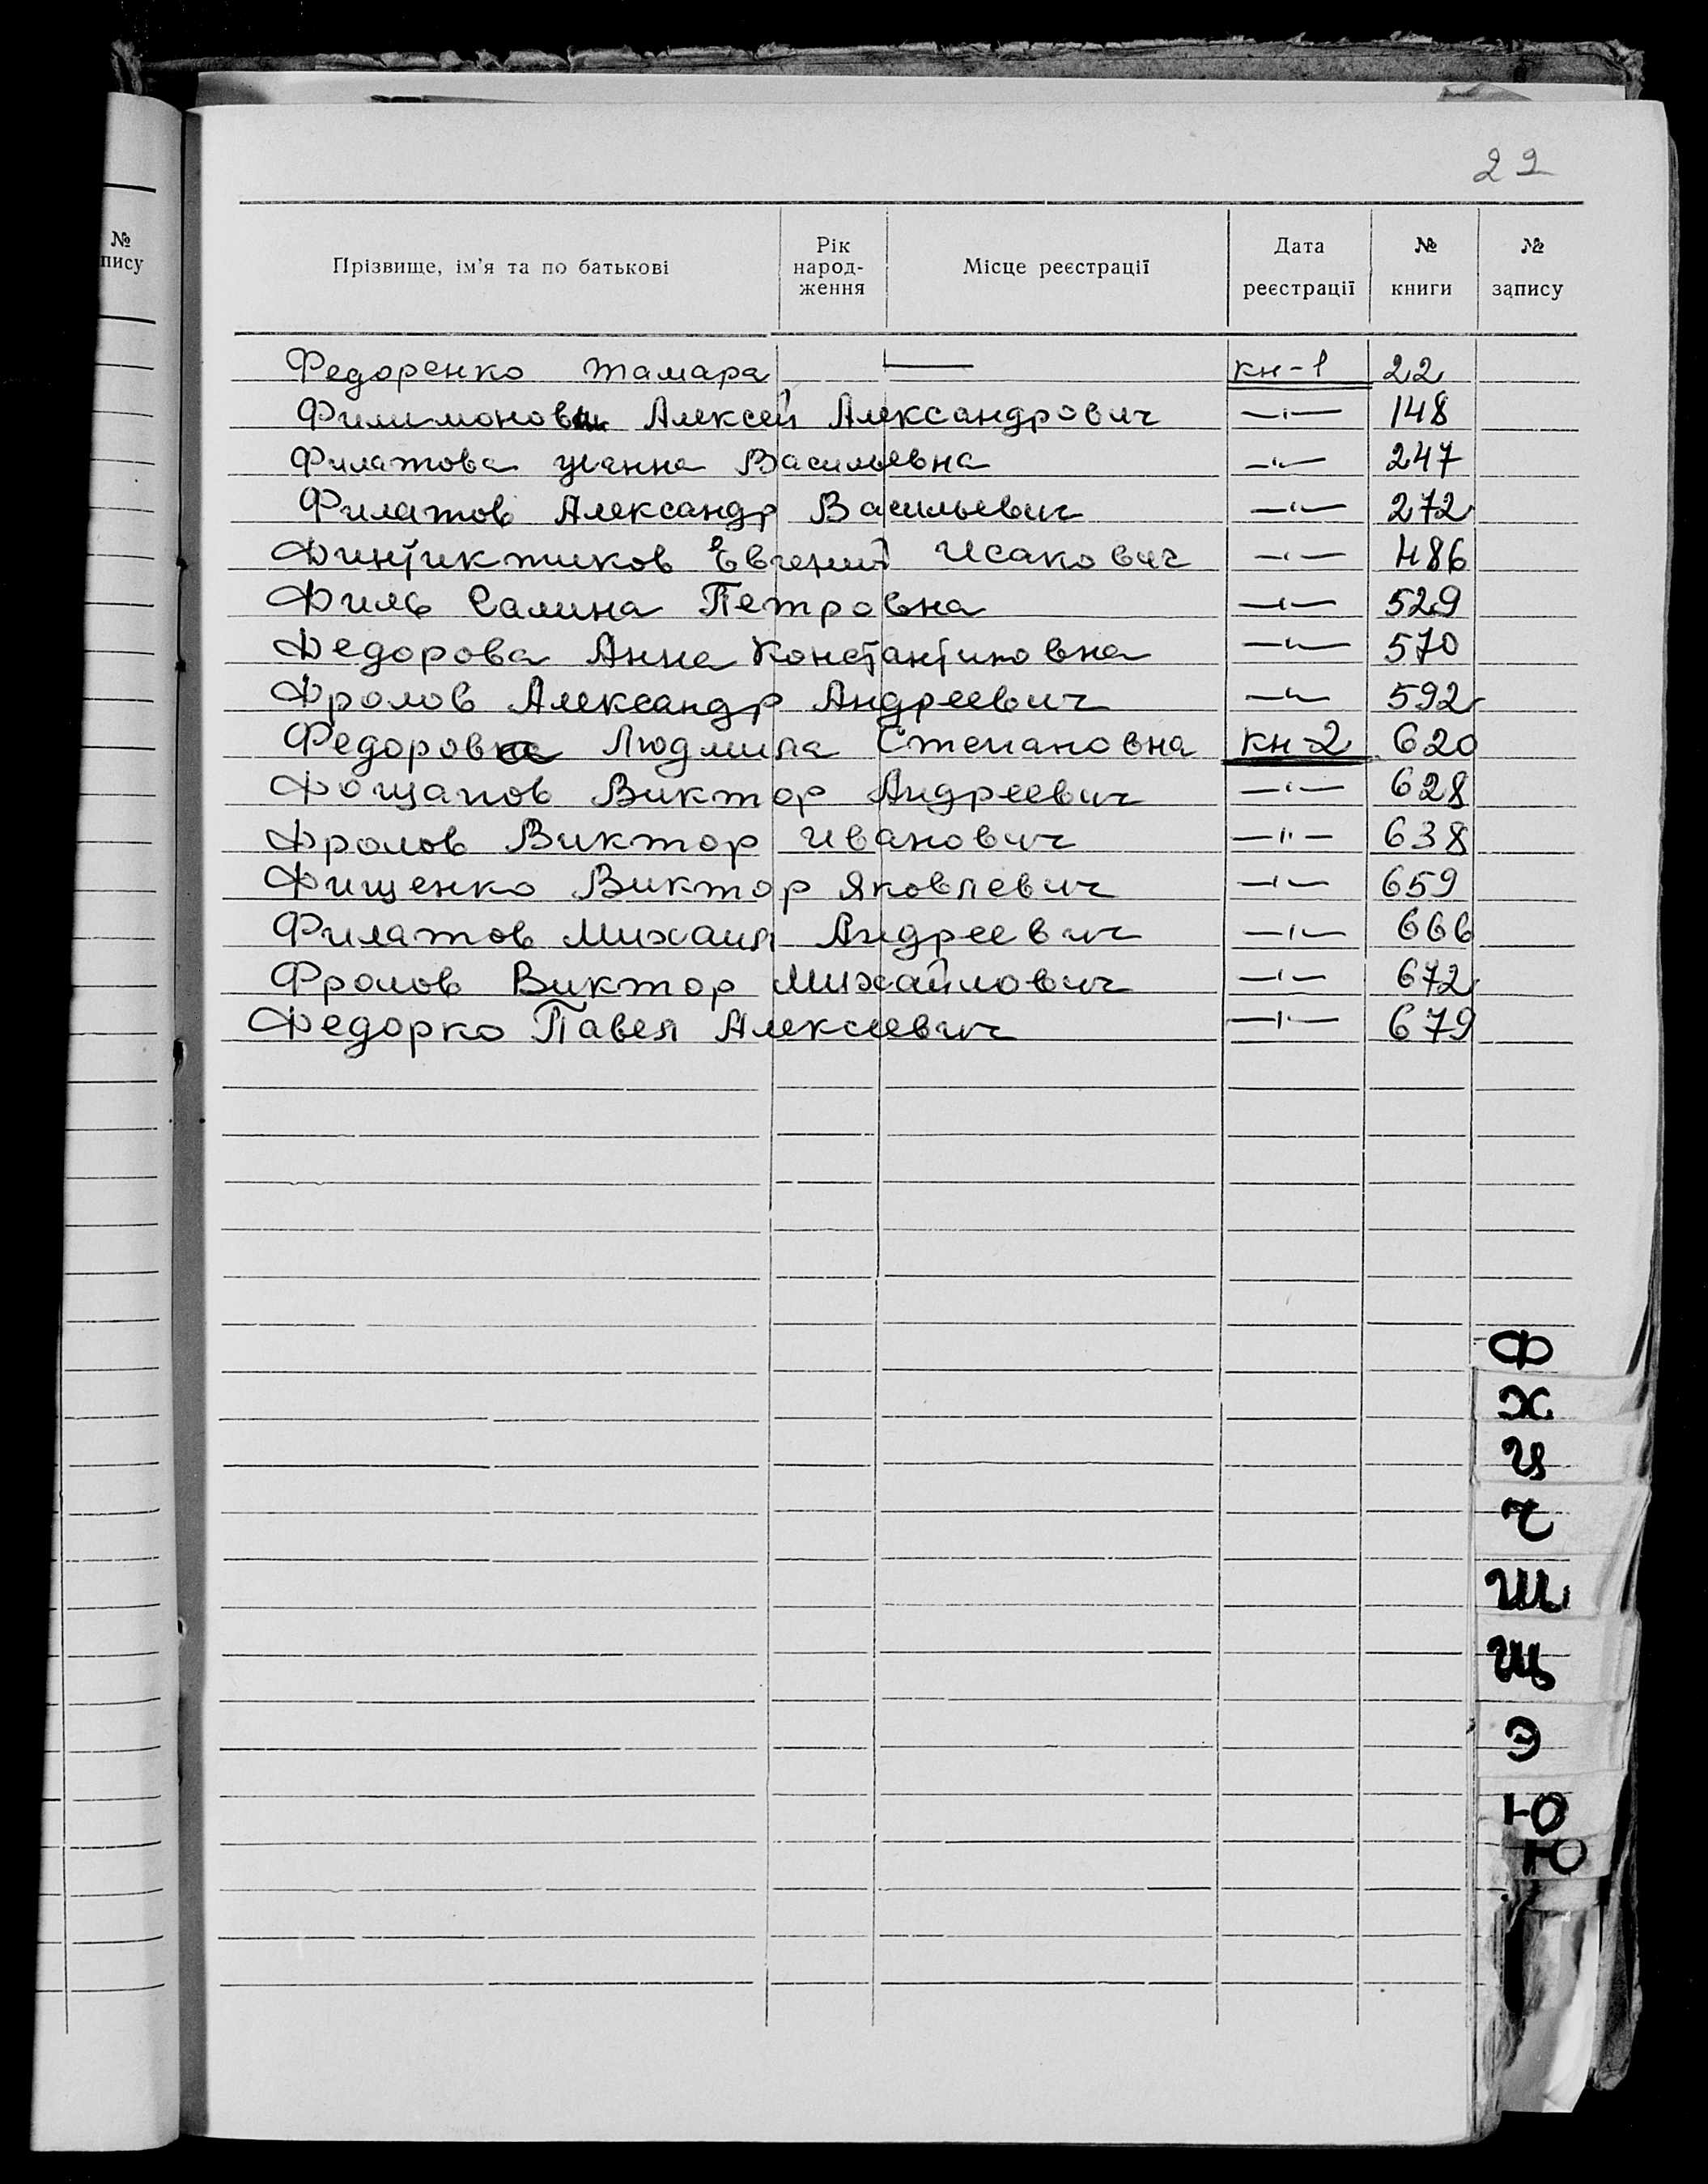 22
№
пису
Прізвище, ім'я та по батькові
Рік
народ-
ження
Місце реєстрації
Дата
реєстрації
№
книги
№
запису
Федоренко Тамара — кн-1 22
Филимонов Алексей Александрович —"— 148
Филатова Жанна Васильевна —"— 247
Филатов Александр Васильевич —"— 272
Финтиктиков Евгений Исакович —"— 486
Филь Галина Петровна —"— 529
Федорова Анна Константиновна —"— 570
Фролов Александр Андреевич —"— 592
Федорова Людмила Степановна кн-2 620
Фощапов Виктор Андреевич —"— 628
Фролов Виктор Иванович —"— 638
Фищенко Виктор Яковлевич —"— 659
Филатов Михаил Андреевич —"— 666
Фролов Виктор Михайлович —"— 672
Федорко Павел Алексеевич —"— 679
Ф
Х
Ц
Ч
Ш
Щ
Э
Ю
Ю